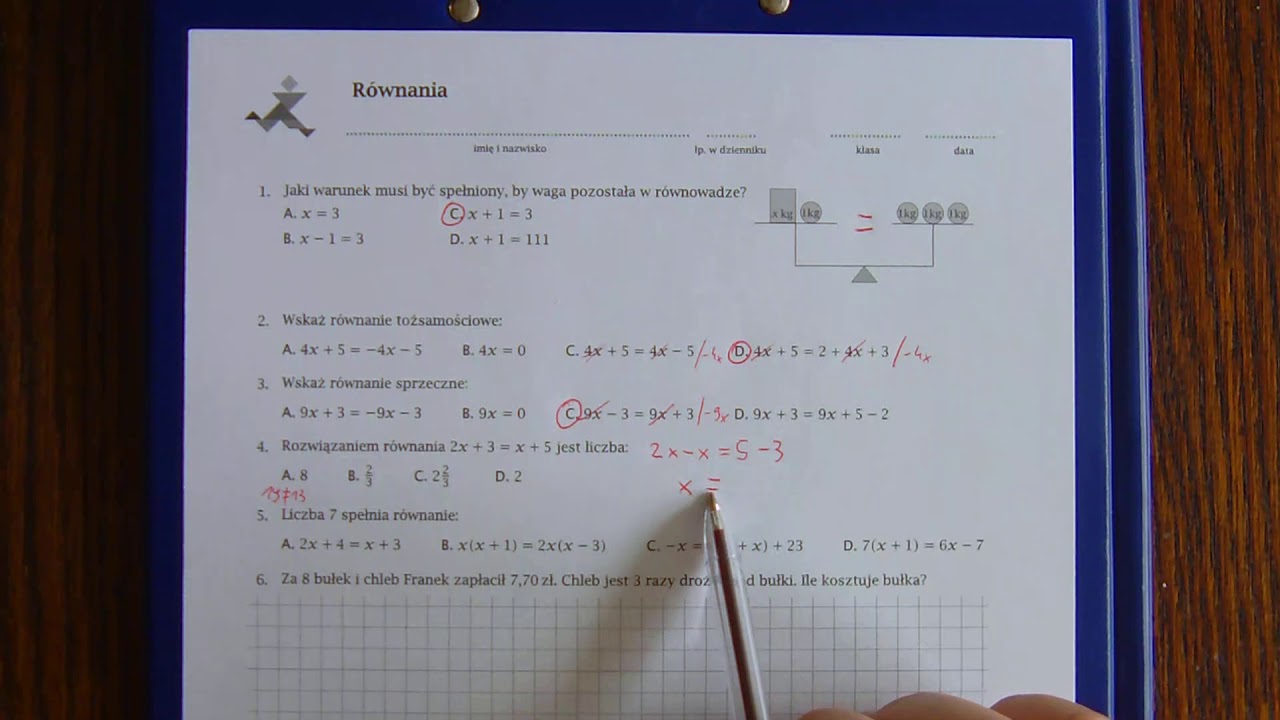 Równania
imię i nazwisko lp. w dzienniku klasa data
1. Jaki warunek musi być spełniony, by waga pozostała w równowadze?
A. x = 3 C. x + 1 = 3
B. x − 1 = 3 D. x + 1 = 111
x kg 1kg = 1kg 1kg 1kg
2. Wskaż równanie tożsamościowe:
A. 4x + 5 = −4x − 5 B. 4x = 0 C. 4x + 5 = 4x − 5 /−4x D. 4x + 5 = 2 + 4x + 3 /−4x
3. Wskaż równanie sprzeczne:
A. 9x + 3 = −9x − 3 B. 9x = 0 C. 9x − 3 = 9x + 3 /−9x D. 9x + 3 = 9x + 5 − 2
4. Rozwiązaniem równania 2x + 3 = x + 5 jest liczba: 2x−x = 5 −3
A. 8 B. 2/3 C. 2 2/3 D. 2 x =
19≠13
5. Liczba 7 spełnia równanie:
A. 2x + 4 = x + 3 B. x(x + 1) = 2x(x − 3) C. −x = + x) + 23 D. 7(x + 1) = 6x − 7
6. Za 8 bułek i chleb Franek zapłacił 7,70 zł. Chleb jest 3 razy bułki. Ile kosztuje bułka?